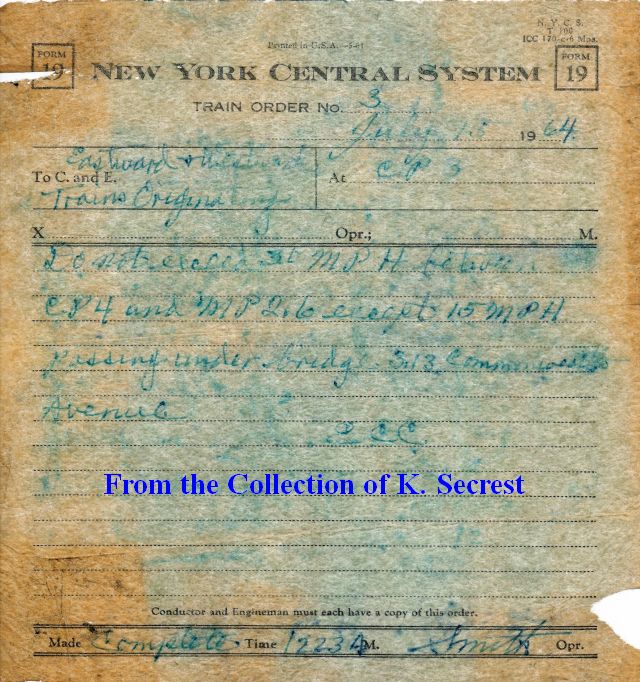 N. Y. C. S.
T 100
ICC 170-c-6 Mos.
Printed in U.S.A.
FORM 19
NEW YORK CENTRAL SYSTEM
FORM 19
TRAIN ORDER No. 3
July 15 1964
To C. and E. Eastward & Westward
Trains Originating
At CP 3
X Opr.; M.
Do not exceed 30 MPH between
CP4 and MP 2.6 except 15 MPH
passing under bridge 3.13 Commonwealth
Avenue
From the Collection of K. Secrest
Conductor and Engineman must each have a copy of this order.
Made Complete Time 1223 A M. Smith Opr.